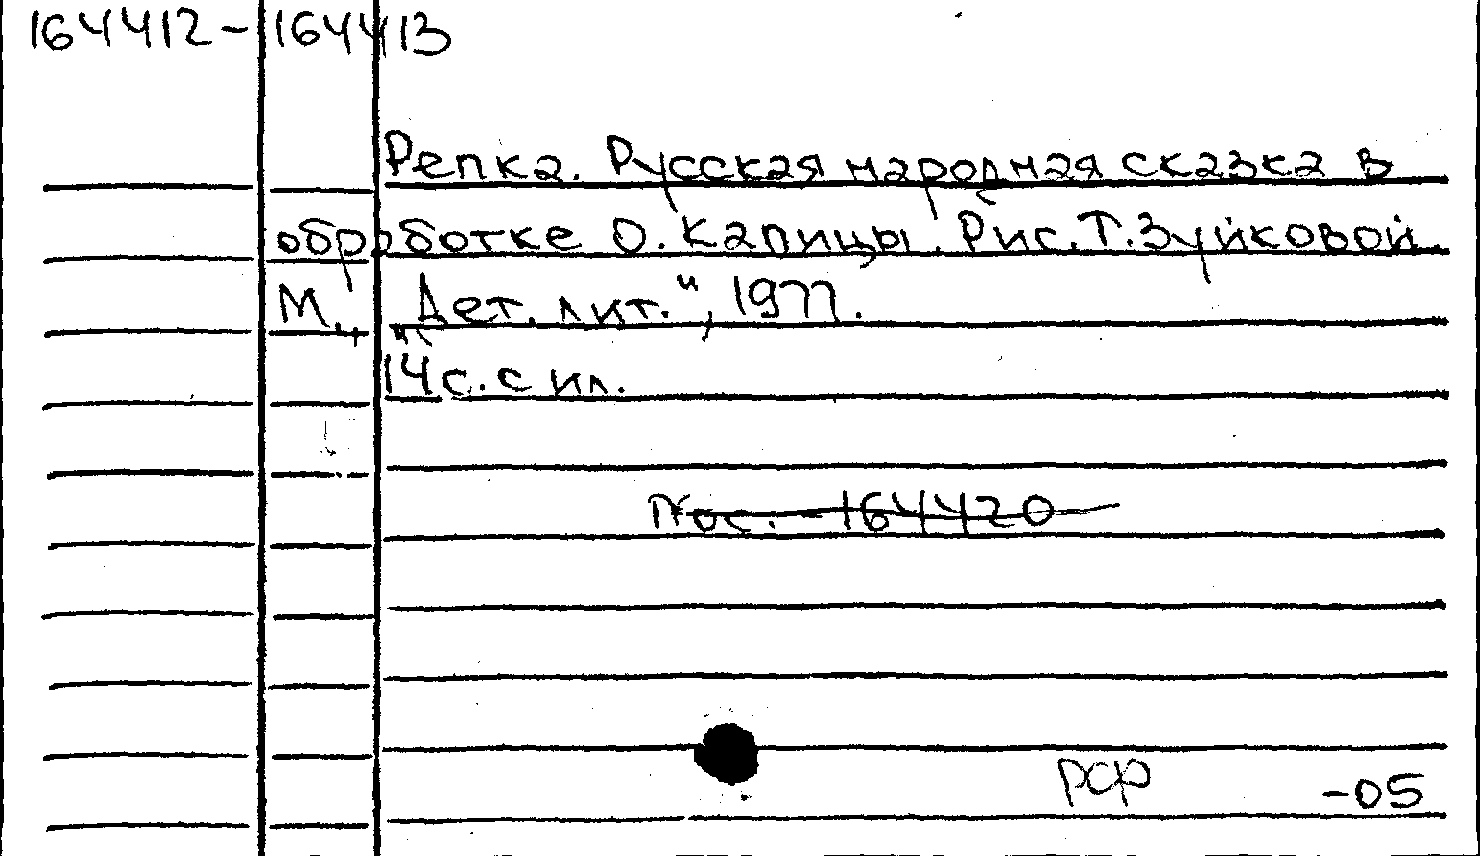 164412-164413
Репка. Русская народная сказка в
обработке О. Капицы. Рис. Т. Зуйковой.
М., „Дет. лит.“, 1977.
14 с. с ил.
Пос. - 164420
РСФ -05